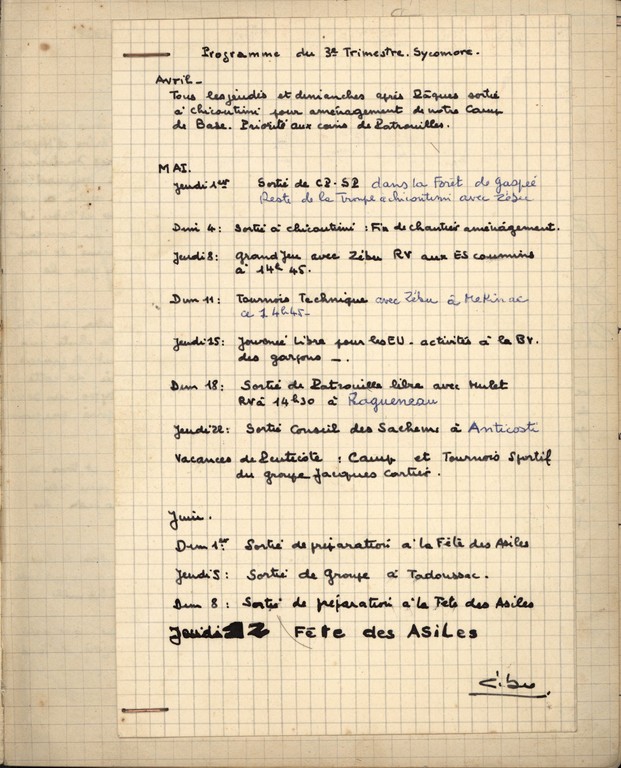 Programme du 3e Trimestre. Sycomore.
Avril -
Tous les jeudis et dimanches après Pâques sortie
à chicoutimi pour aménagement de notre Camp
de Base. Priorité aux coins de Patrouilles.
MAI.
Jeudi 1er Sortie de CP-SP dans la Forêt de Gaspée
Reste de la Troupe à chicoutimi avec Zébu
Dim 4: Sortie à chicoutimi : Fin de chantier aménagement.
Jeudi 8: Grand Jeu avec Zébu RV aux Escoumins
à 14h 45.
Dim 11: Tournois Technique avec Zébu à Mekinac
à 14h45-
Jeudi 15: Journée Libre pour les EU - activités à la BV.
des garçons -.
Dim 18: Sortie de Patrouille libre avec Mulet
RV à 14h30 à Ragueneau
Jeudi 22: Sortie Conseil des Sachems à Anticosti
Vacances de Pentecôte : Camp et Tournois Sportif
du groupe Jacques Cartier.
Juin.
Dim 1er Sortie de préparation à la Fête des Asiles
Jeudi 5: Sortie de Groupe à Tadoussac.
Dim 8: Sortie de préparation à la Fête des Asiles
Jeudi 12 Fête des ASILES